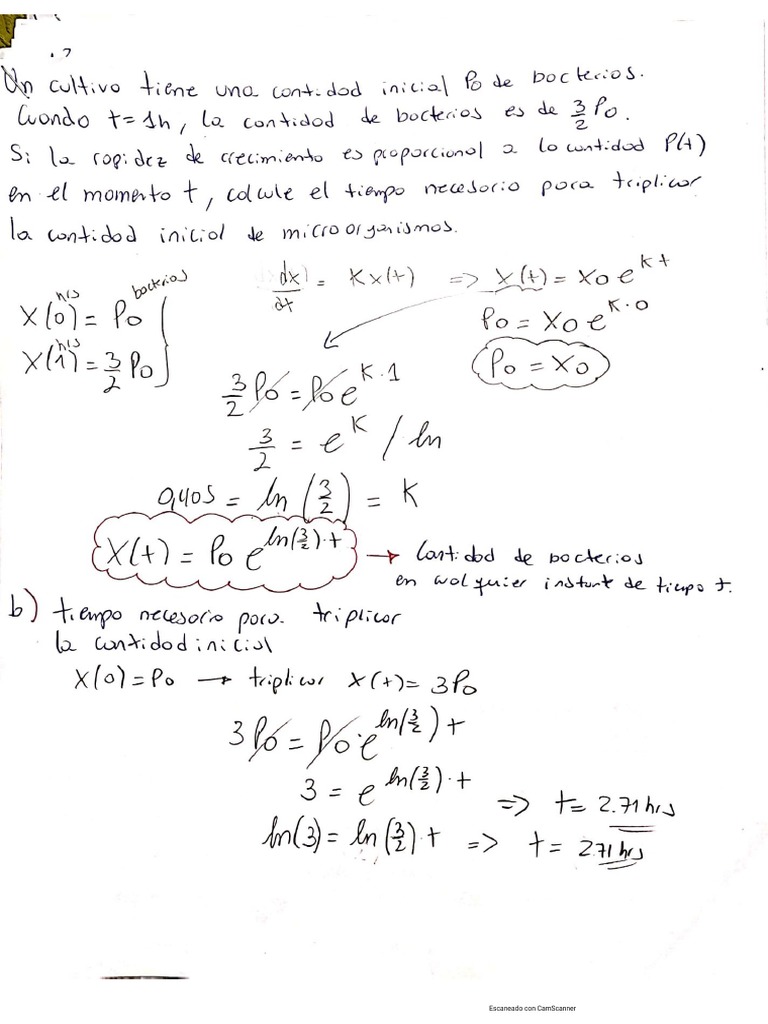 Un cultivo tiene una cantidad inicial Po de bacterias.
Cuando t = 1h, la cantidad de bacterias es de 3/2 Po.
Si la rapidez de crecimiento es proporcional a la cantidad P(t)
en el momento t, calcule el tiempo necesario para triplicar
la cantidad inicial de microorganismos.
dx/dt = Kx(t) => x(t) = xo e^(K t)
hrs bacterias
X(0) = Po
Po = Xo e^(K·0)
hrs
X(1) = 3/2 Po
Po = xo
3/2 Po = Po e^(K·1)
3/2 = e^K / ln
0,405 = ln(3/2) = K
X(t) = Po e^(ln(3/2)·t) → Cantidad de bacterias
en cualquier instant de tiempo t.
b) tiempo necesario para triplicar
la cantidad inicial
X(0) = Po → triplicar X(t) = 3Po
3Po = Po · e^(ln(3/2) t)
3 = e^(ln(3/2)·t) => t = 2.71 hrs
ln(3) = ln(3/2)·t => t = 2.71 hrs
Escaneado con CamScanner